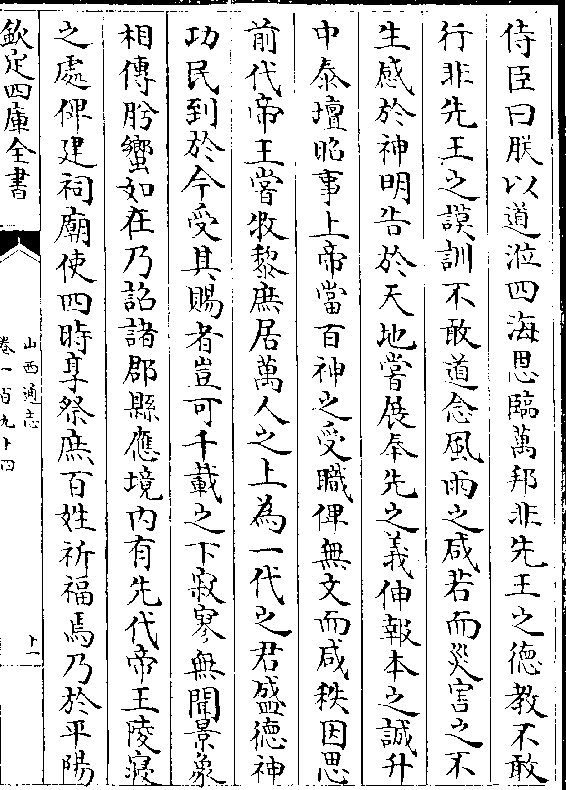 侍臣曰朕以道涖四海思臨萬邦非先王之德教不敢
行非先王之謨訓不敢道念風雨之咸若而災害之不
生感於神明告於天地嘗展奉先之義伸報本之誠升
中泰壇昭事上帝當百神之受職俾無文而咸秩因思
前代帝王嘗牧黎庶居萬人之上為一代之君盛德神
功民到於今受其賜者豈可千載之下寂寥無聞景象
相傳肸蠁如在乃詔諸郡縣應境内有先代帝王陵寢
之處俾建祠廟使四時享祭庶百姓祈福焉乃於平陽
欽定四庫全書
山西通志
卷一百九十四
十一